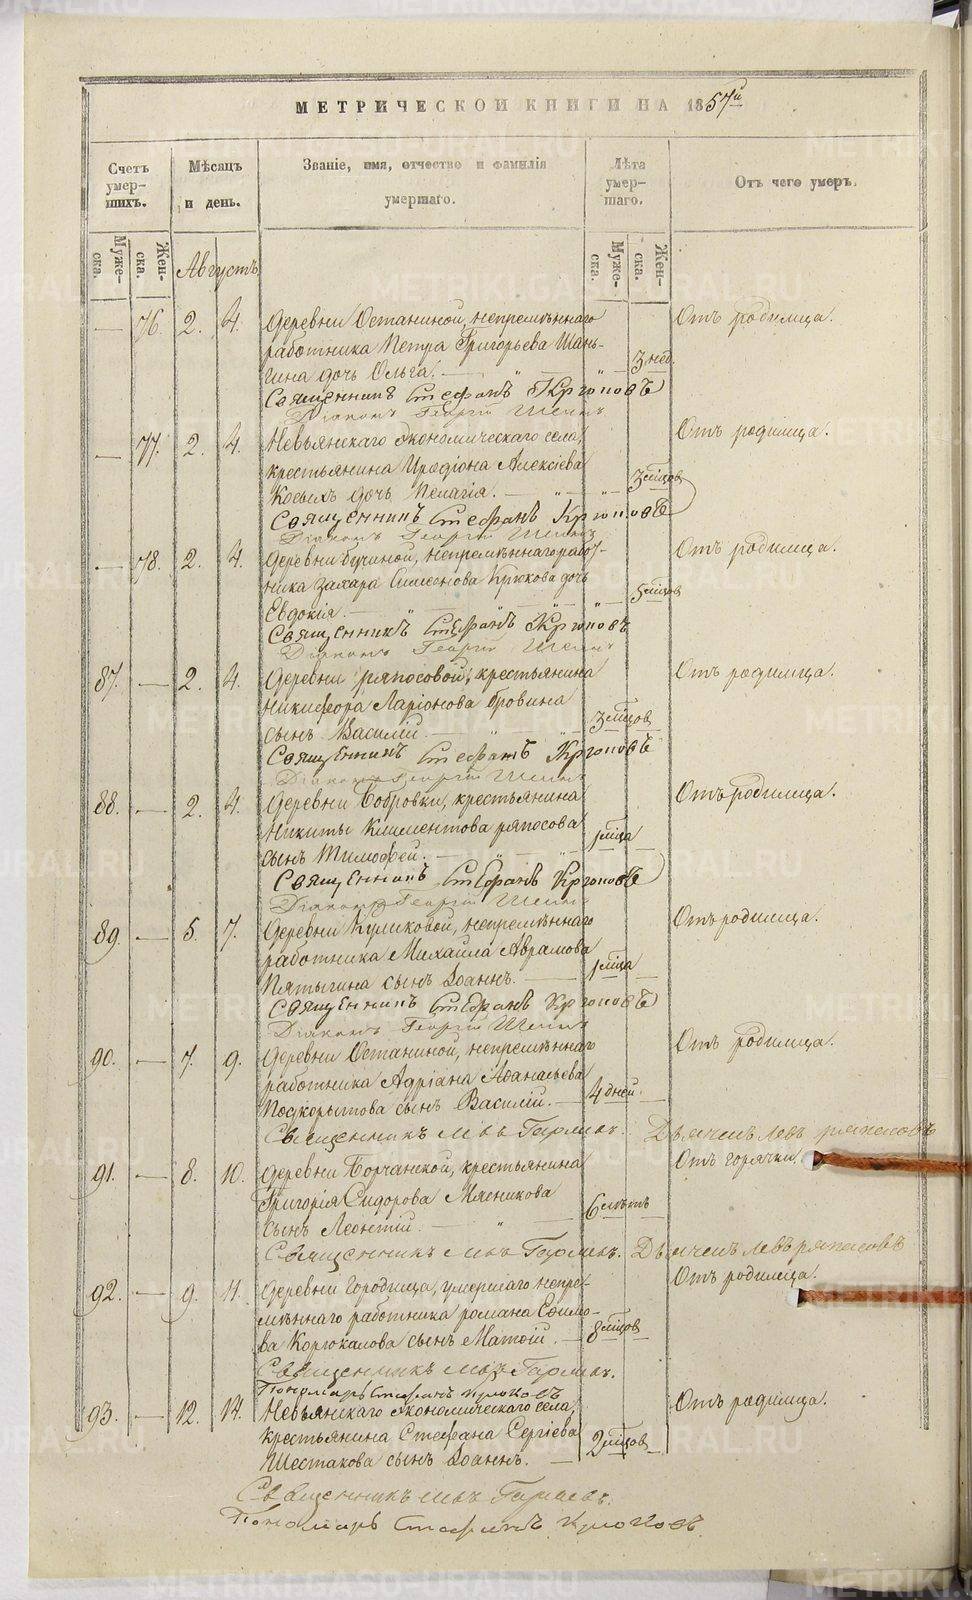 МЕТРИЧЕСКОЙ КНИГИ НА 1857й
Счетъ умер-шихъ.
Мѣсяцъ и день.
Званіе, имя, отчество и фамилія
умершаго.
Лѣта умер-шаго.
Отъ чего умеръ.
Муже-ска.
Жен-ска.
Муже-ска.
Жен-ска.
Августъ
76. 2. 4. Деревни Останиной, непремѣннаго Отъ родимца.
работника Петра Григорьева Шань-
гина дочь Ольга. 3 нед.
Священникъ Стефанъ Крюковъ
Діаконъ Георгій
77. 2. 4. Невьянскаго экономическаго села, Отъ родимца.
крестьянина Иродіона Алексіева
Косыхъ дочь Пелагія. 3 мѣсцов
Священникъ Стефанъ Крюковъ
Діаконъ Георгій
78. 2. 4. Деревни Бучиной, непремѣннаго работ- Отъ родимца.
ника Захара Симеонова Крюкова дочь
Евдокія. 5 мѣсцов
Священникъ Стефанъ Крюковъ
Діаконъ Георгій
87. 2. 4. Деревни Ряпосовой, крестьянина Отъ родимца.
Никифора Ларіонова
сынъ Василій 3 мѣсцов
Священникъ Стефанъ Крюковъ
Діаконъ Георгій
88. 2. 4. Деревни Бобровки, крестьянина Отъ родимца.
Никиты Климентова Ряпосова
сынъ Тимофей. 1 мѣсца
Священникъ Стефанъ Крюковъ
Діаконъ Георгій
89. 5. 7. Деревни Куликовой, непремѣннаго Отъ родимца.
работника Михаила Аврамова
Пятыгина сынъ Іоаннъ. 1 мѣсца
Священникъ Стефанъ Крюковъ
Діаконъ Георгій
90. 7. 9. Деревни Останиной, непремѣннаго Отъ родимца.
работника Адріана Аѳанасьева
Подкорытова сынъ Василій. 4 дней.
Священникъ Дьячекъ Левъ Ряпасовъ
91. 8. 10. Деревни Борчанской, крестьянина Отъ горячки.
Григорія Сидорова Мясникова
сынъ Леонтій. 6 лѣтъ
Священникъ Дьячекъ Левъ Ряпасовъ
92. 9. 11. Деревни Городища, умершаго непре- Отъ родимца.
мѣннаго работника Романа Ефимо-
ва Корюкалова сынъ Матѳій. 8 мѣсцов
Священникъ
Пономарь Стефанъ Крюковъ
93. 12. 14. Невьянскаго экономическаго села, Отъ родимца.
крестьянина Стефана Сергіева
Шестакова сынъ Іоаннъ. 2 мѣсцов
Священникъ
Пономарь Стефанъ Крюковъ
METRIKI.GASO-URAL.RU